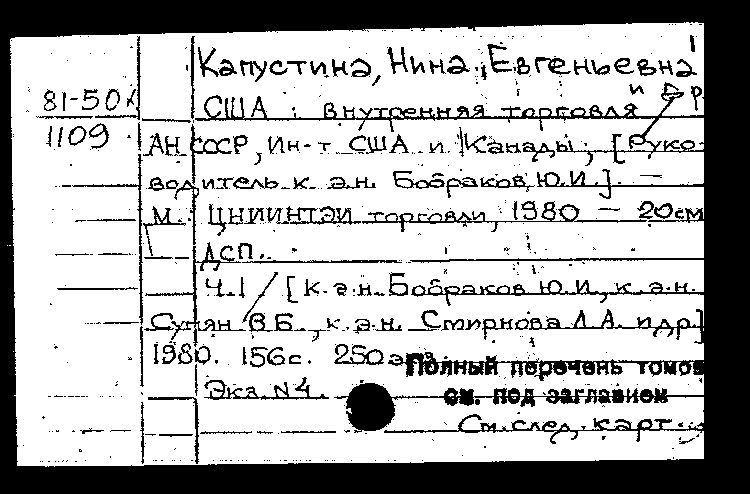 Капустина, Нина Евгеньевна
81-50
США : внутренняя торговля и
1109
АН СССР, Ин-т США и Канады; [Руко-
водитель к. э.н. Бобраков Ю.И.]. —
М.: ЦНИИНТЭИ торговли, 1980 — 20см
ДСП.
Ч.1 / [к.э.н. Бобраков Ю.И., к.э.н.
Супян В.Б., к.э.н. Смирнова Л.А. и др.]
1980. 156с. 250 экз.
Полный перечень томов
Экз. N4.
см. под заглавием
См. след. карт.